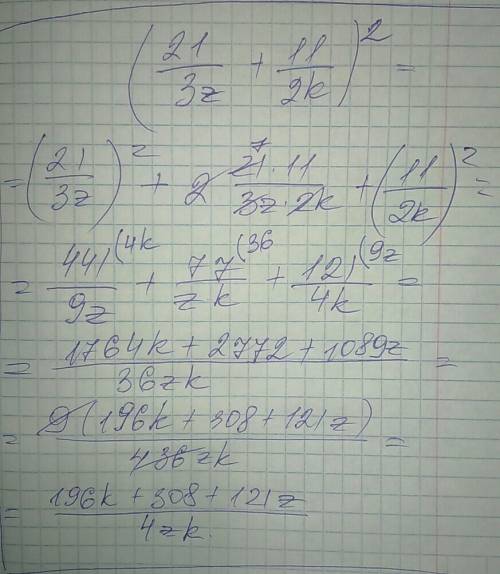 (21/3z + 11/2k)² =
= (21/3z)² + 2 21·11/3z·2k 7 + (11/2k)² =
= 441/9z (4k + 77/zk (36 + 121/4k (9z =
= 1764k + 2772 + 1089z/36zk =
= 9(196k + 308 + 121z)/4 36zk =
= 196k + 308 + 121z/4zk.